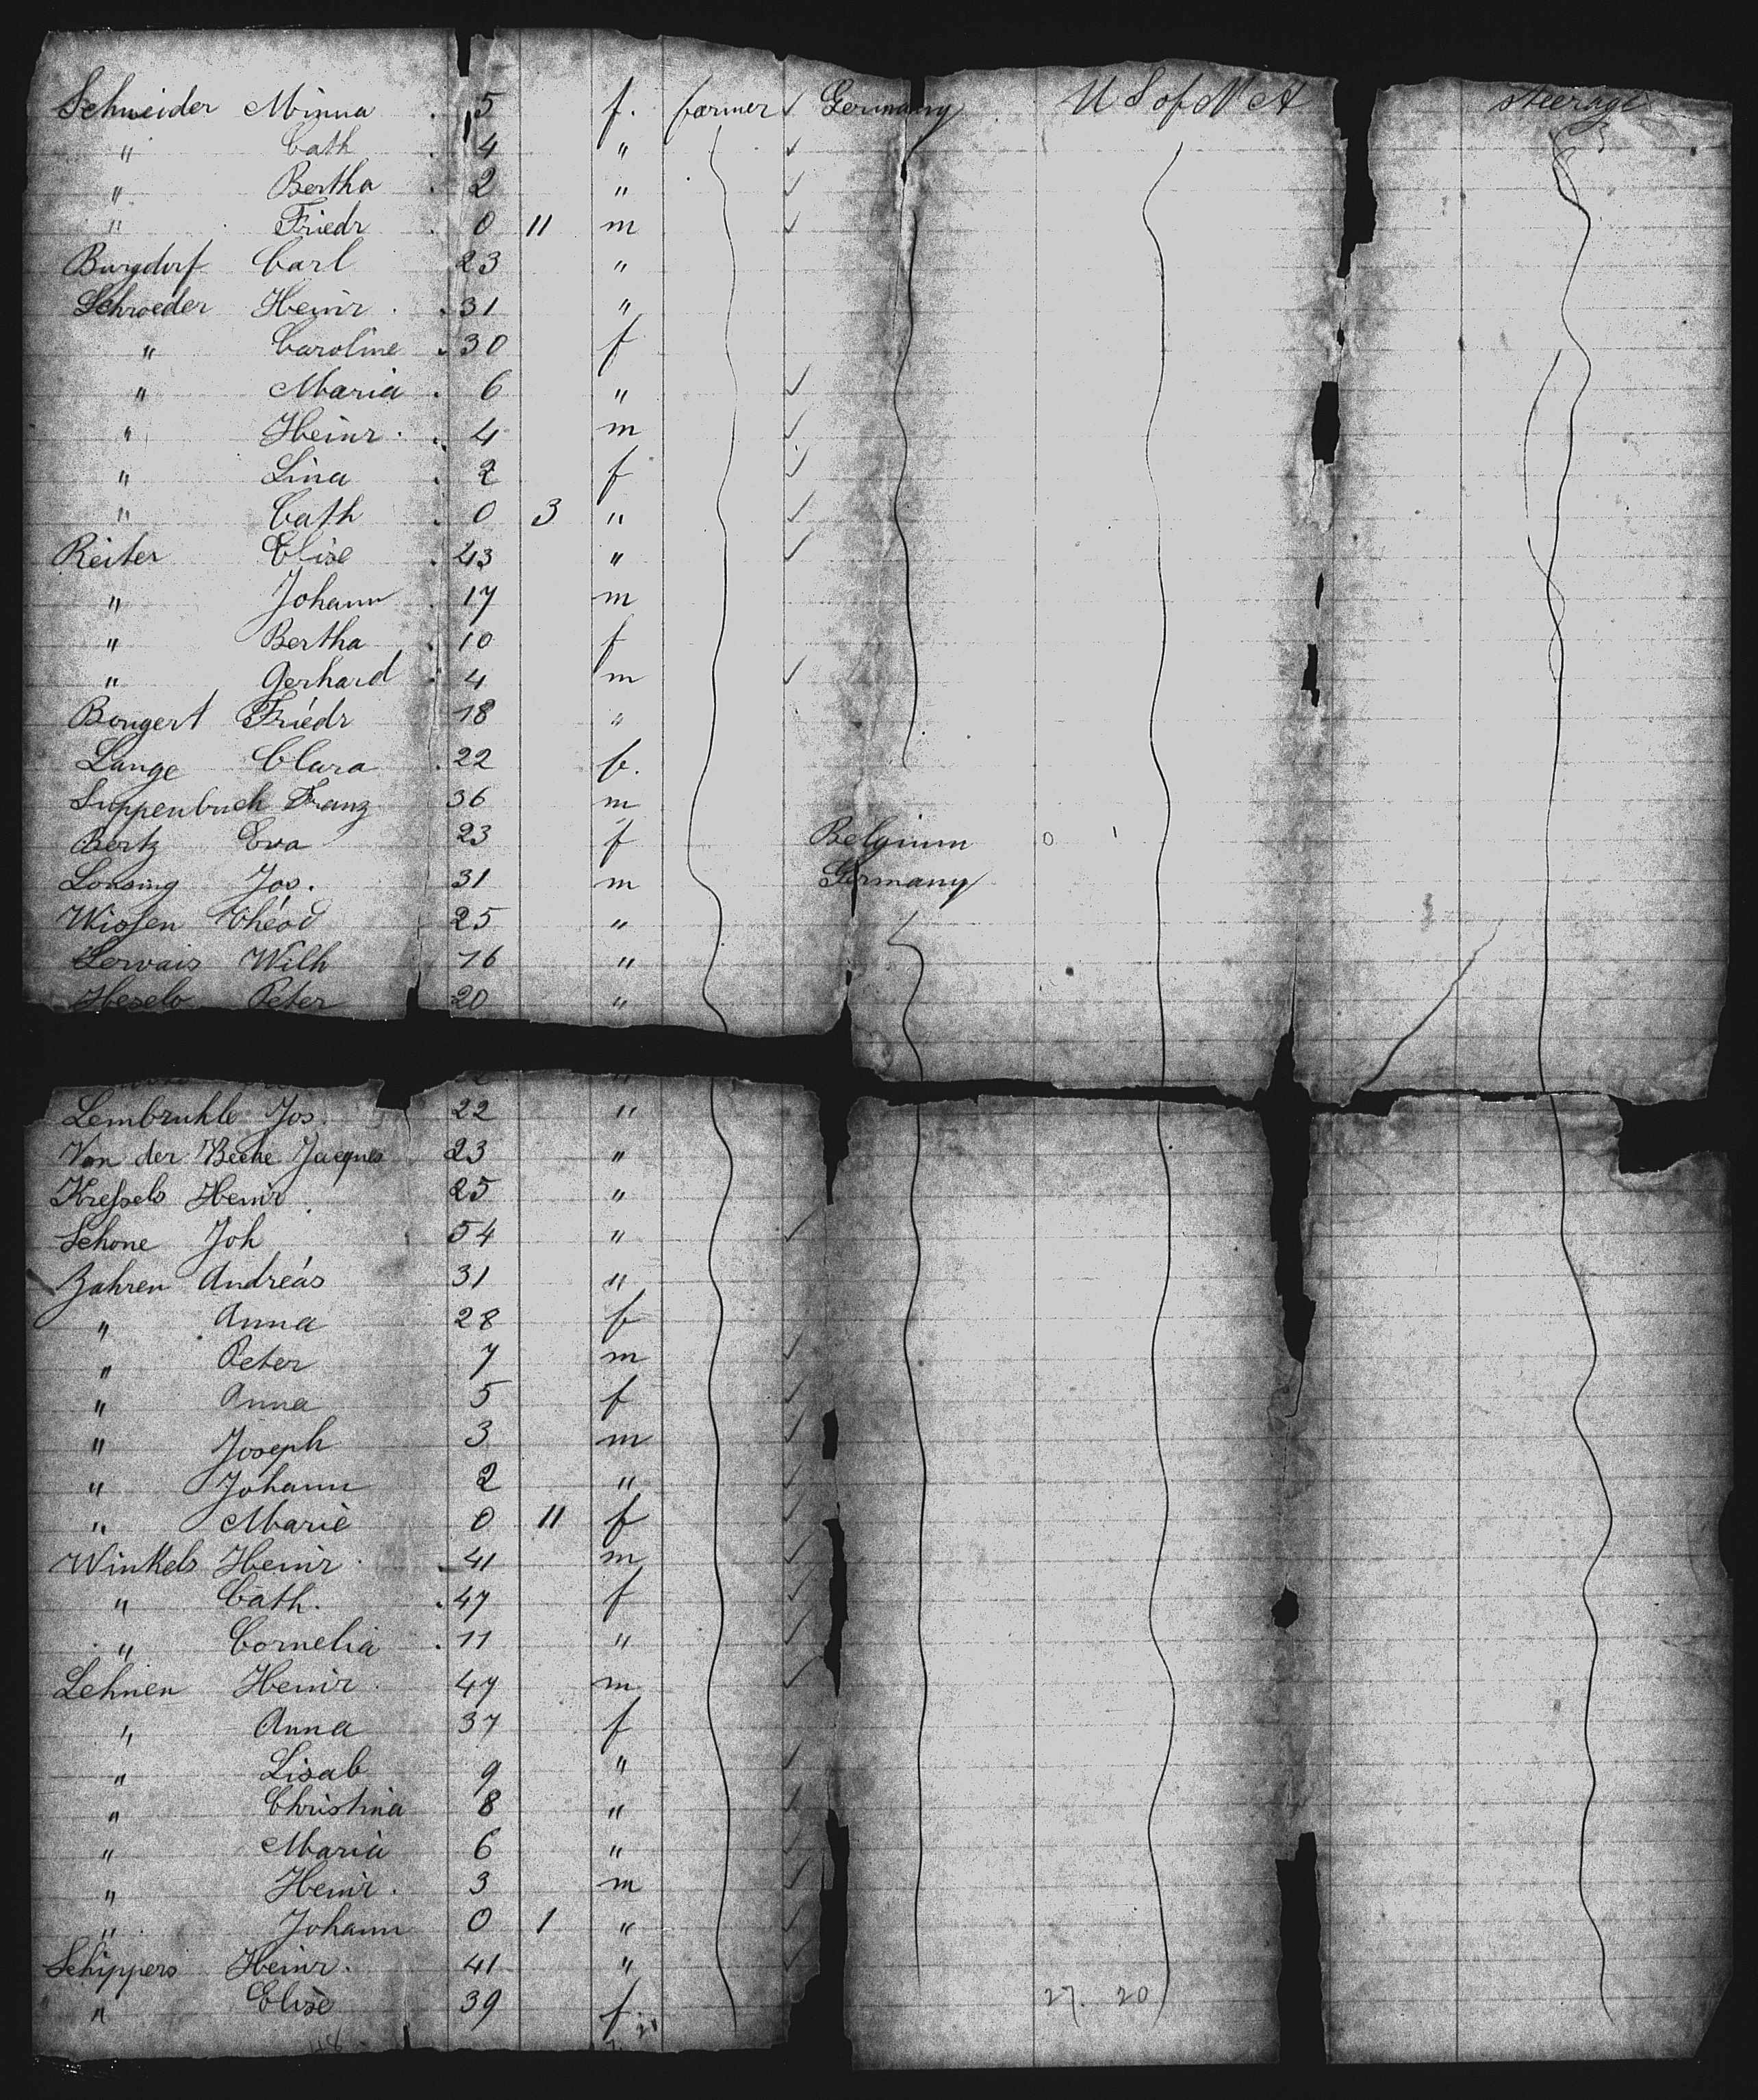 Schneider Minna . 5 f. farmer ✓ Germany U S of N A steerage
" Cath . 4 " ✓
" Bertha . 2 " ✓
" Friedr . 0 11 m ✓
Burgdorf Carl 23 "
Schroeder Heinr . 31 "
" Caroline . 30 f
" Maria . 6 " ✓
" Heinr . 4 m ✓
" Lina . 2 f ✓
" Cath . 0 3 " ✓
Reiter Elise . 43 " ✓
" Johann . 17 m
" Bertha . 10 f
" Gerhard . 4 m ✓
Bongert Friedr 18 "
Lange Clara . 22 f.
Suppenbuch Franz 36 m
Bertz Eva 23 f Belgium
Lonsing Jos. 31 m Germany
Wissen Theod 25 "
Gervais Wilh 16 "
Heselo Peter 20 "
Lembruhle Jos. 22 "
Von der Beeke Jacques 23 "
Kressels Heinr. 25 "
Schone Joh 54 " ✓
Zahren Andreas 31 "
" Anna 28 f
" Peter 7 m ✓
" Anna 5 f ✓
" Joseph 3 m ✓
" Johann 2 " ✓
" Marie 0 11 f ✓
Winkels Heinr . 41 m ✓
" Cath. . 47 f ✓
" Cornelia . 11 " ✓
Lehnen Heinr . 47 m ✓
" Anna 37 f
" Lisab 9 " ✓
" Christina 8 " ✓
" Maria 6 " ✓
" Heinr . 3 m ✓
" Johann 0 1 " ✓
Schippers Heinr. 41 " ✓
" Elise 39 f 27. 20